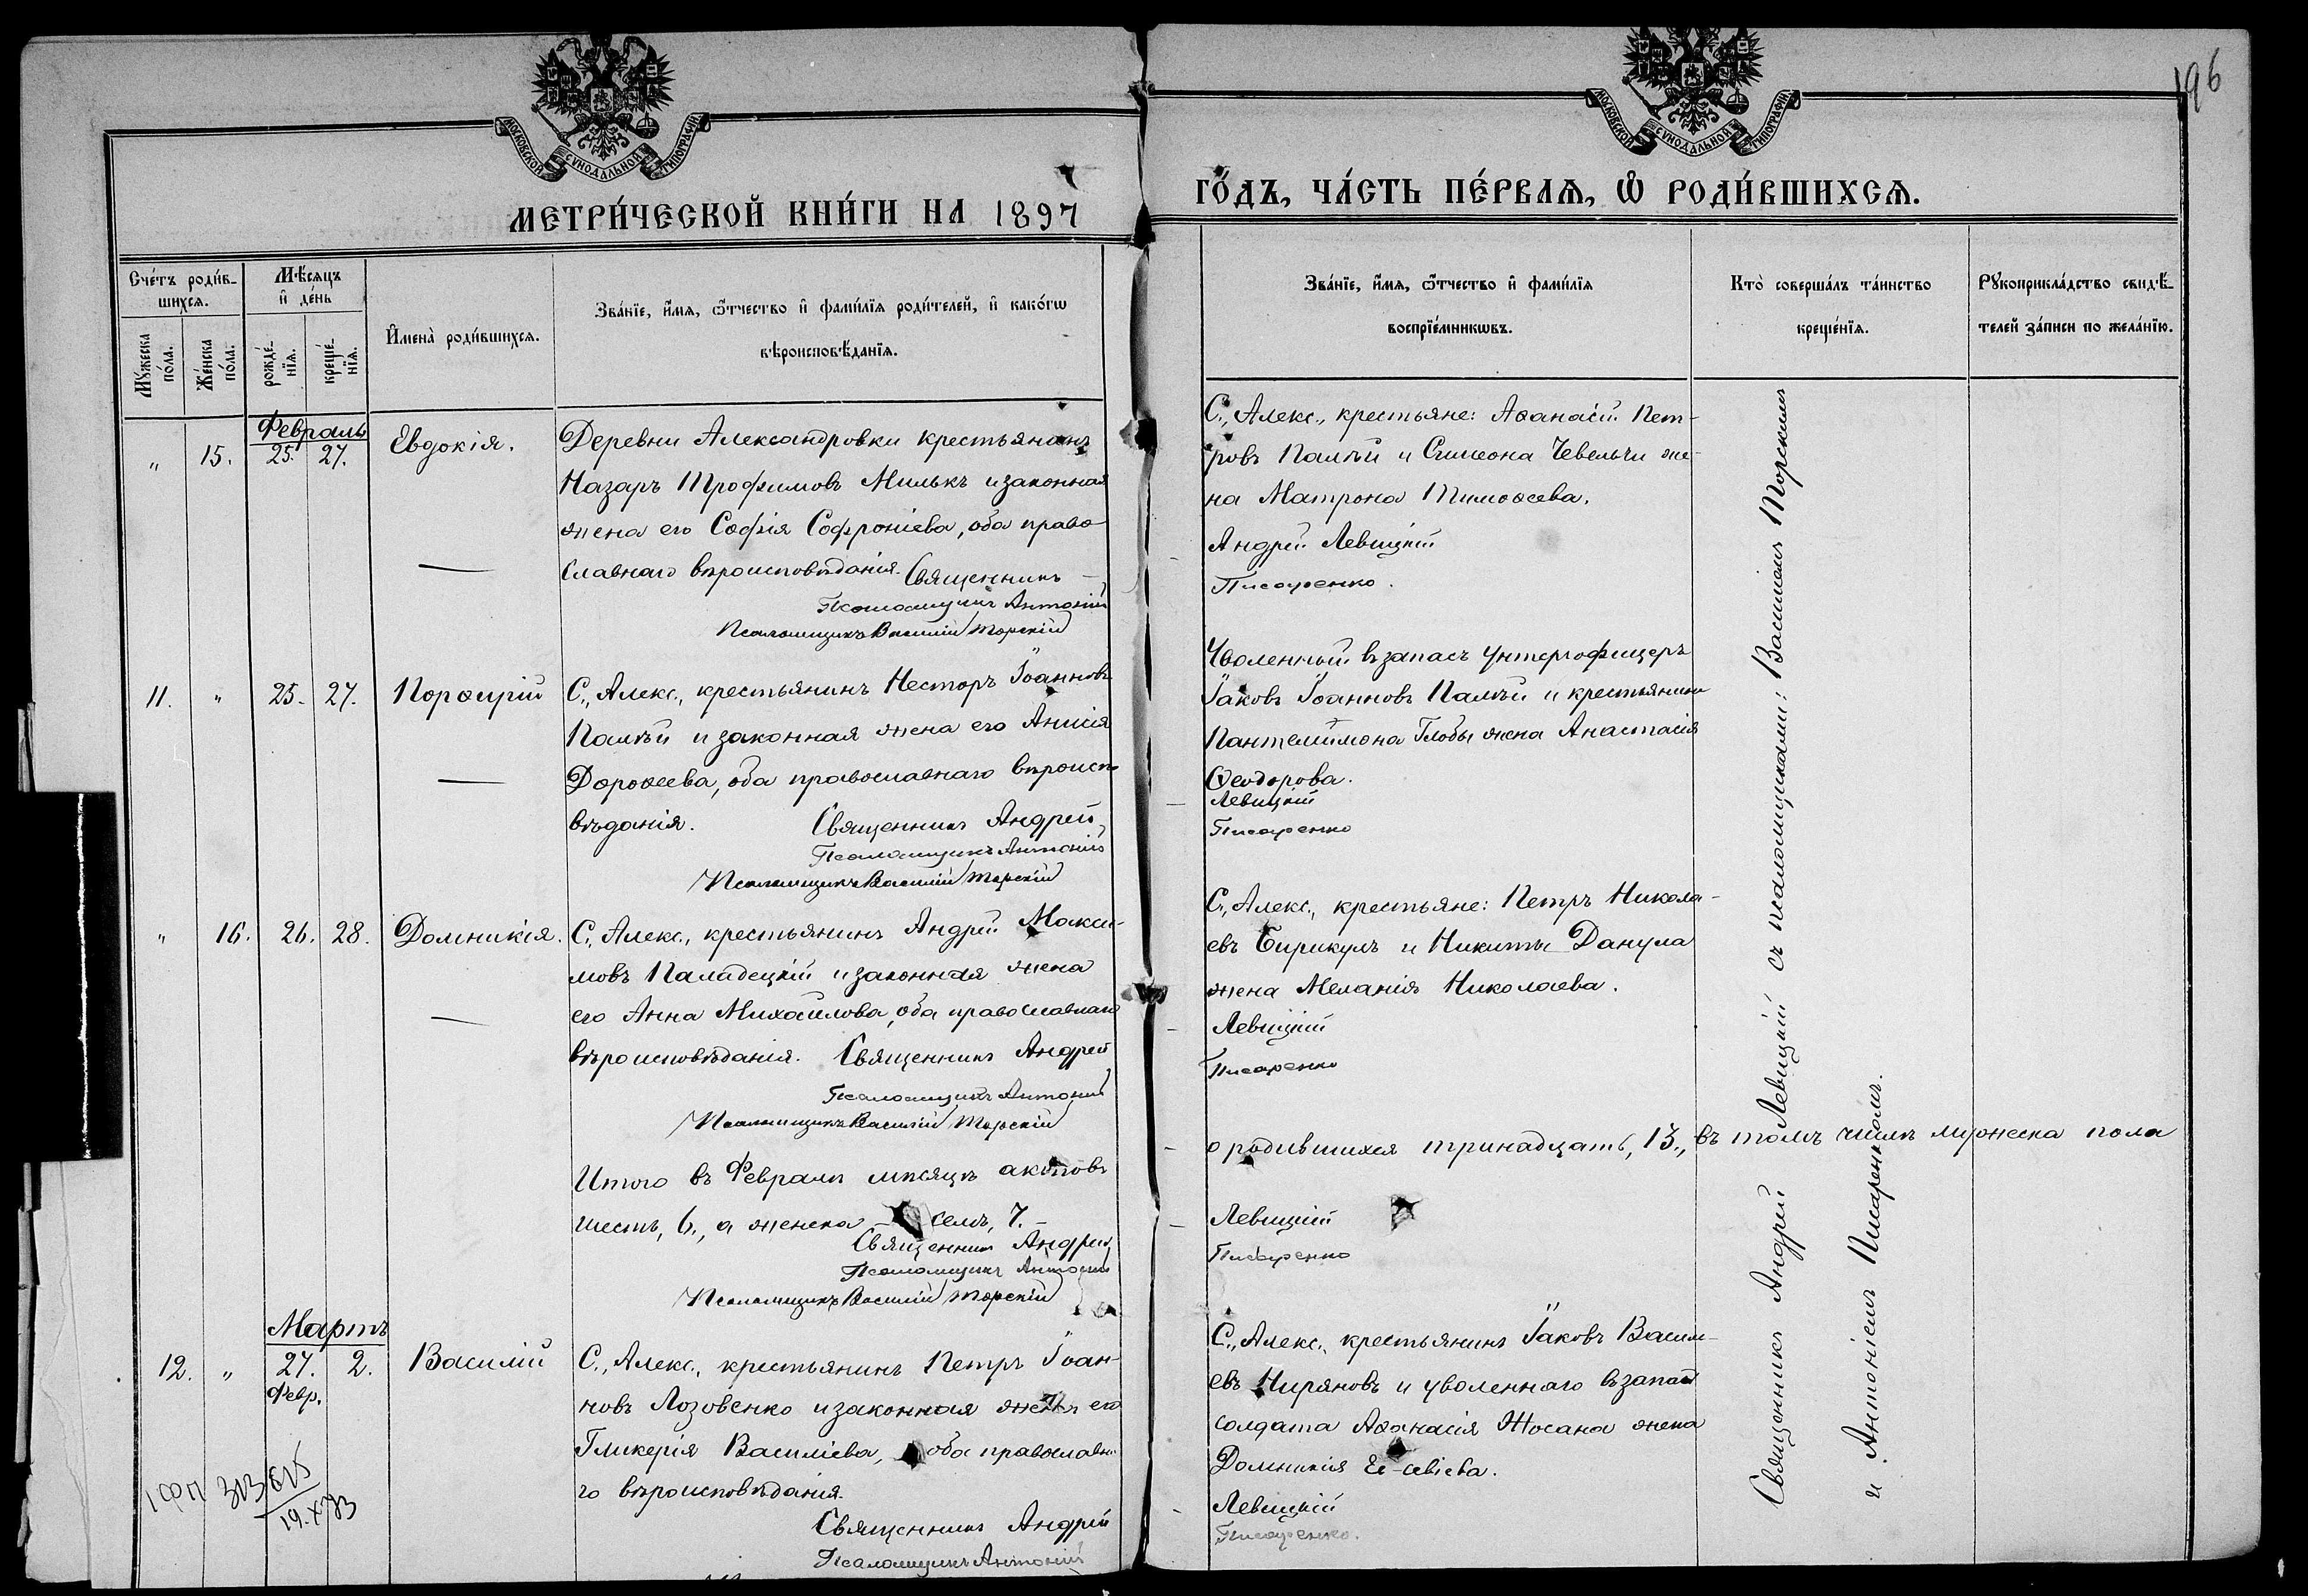 196
МОСКОВСКОЙ СУНОДАЛЬНОЙ ТИПОГРАФІИ
МОСКОВСКОЙ СУНОДАЛЬНОЙ ТИПОГРАФІИ
МЕТРИ́ЧЕСКОЙ КНИ́ГИ НА 1897
ГО́ДЪ, ЧА́СТЬ ПЕ́РВАЯ, Ѡ РОДИ́ВШИХСЯ.
Сче́тъ роди́в-
шихся.
Мѣ́сяцъ
и҆ де́нь
Му́жеска
по́ла.
Же́нска
по́ла.
рожде́-
нїя.
креще́-
нїя.
И҆мена̀ роди́вшихся.
Зва́нїе, и҆́мя, ѻ҆́тчество и҆ фами́лїя роди́телей, и҆ како́гѡ
вѣроисповѣ́данїя.
Зва́нїе, и҆́мя, ѻ҆́тчество и҆ фами́лїя
воспрїе́мникѡвъ.
Кто̀ соверша́лъ та́инство
креще́нїя.
Рукоприкла́дство свидѣ́-
телей за́писи по жела́нїю.
Февраль
" 15. 25. 27. Евдокія.
Деревни Александровки крестьянинъ
Назаръ Трофимовъ Милькъ и законная
жена его Софія Софроніева, оба право-
славнаго вѣроисповѣданія. Священникъ
Псаломщикъ Антоній
Псаломщикъ Василій Торскій
С., Алекс., крестьяне: Аѳанасій Пет-
ровъ Палѣй и Симеона Чебельчи же-
на Матрона Тимоѳеева.
Андрей Левицкій
Писаренко.
11. " 25. 27. Порѳирій
С., Алекс., крестьянинъ Несторъ Іоанновъ
Палѣй и законная жена его Анисія
Дороѳеева, оба православнаго вѣроиспо-
вѣданія. Священникъ Андрей
Псаломщикъ Антоній
Псаломщикъ Василій Торскій
Уволенный въ запасъ унтерофицеръ
Іаковъ Іоанновъ Палѣй и крестьянина
Пантелиимона Глобы жена Анастасія
Ѳеодорова.
Левицкій
Писаренко
" 16. 26. 28. Домникія.
С., Алекс., крестьянинъ Андрей Макси-
мовъ Паладецкій и законная жена
его Анна Михаилова, оба православнаго
вѣроисповѣданія. Священникъ Андрей
Псаломщикъ Антоній
Псаломщикъ Василій Торскій
С., Алекс., крестьяне: Петръ Никола-
евъ Бирикулъ и Никиты Данула
жена Меланія Николаева.
Левицкій
Писаренко
Итого въ Февралѣ мѣсяцѣ актовъ
о родившихся тринадцать, 13., въ томъ числѣ мужеска пола
шесть, 6., а женска – семь, 7. –
Священникъ Андрей
Псаломщикъ Антоній
Псаломщикъ Василій Торскій
Левицкій
Писаренко
Мартъ
12. " 27. 2. Василій
Февр.
С., Алекс., крестьянинъ Петръ Іоан-
новъ Лозовенко и законная жена его
Гликерія Василіева, оба православна-
го вѣроисповѣданія.
Священникъ Андрей
Псаломщикъ Антоній
С., Алекс., крестьянинъ Іаковъ Васил-
евъ Киряновъ и уволеннаго въ запасъ
солдата Аѳанасія Жосана жена
Домникія
Левицкій
Писаренко.
19.X
Священникъ Андрей Левицкій съ псаломщиками: Василіемъ Торскимъ
и Антоніемъ Писаренкомъ.